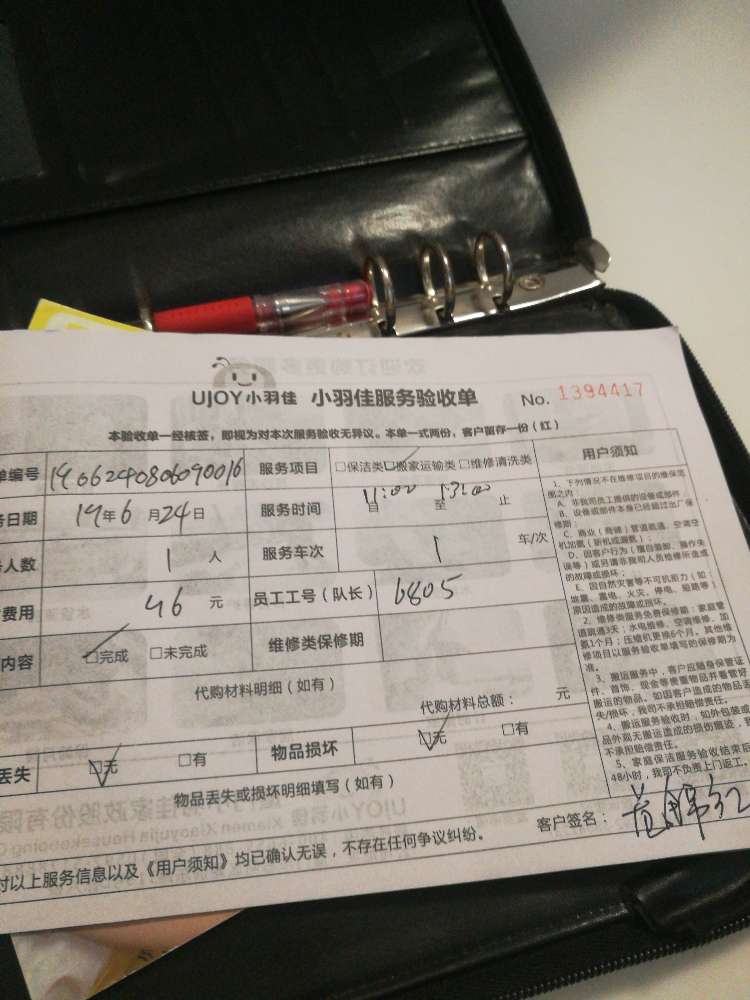 UJOY小羽佳 小羽佳服务验收单 No. 1394417
本验收单一经核签，即视为对本次服务验收无异议。本单一式两份，客户留存一份（红）
单编号 1906240806090016 服务项目 □保洁类 □搬家运输类 □维修清洗类
务日期 19年6月24日 服务时间 11:00 自 至 13:00 止
人数 1 人 服务车次 1 车/次
费用 46 元 员工工号（队长） 6805
内容 □完成 □未完成 维修类保修期
代购材料明细（如有） 代购材料总额： 元
丢失 □无 □有 物品损坏 □无 □有
物品丢失或损坏明细填写（如有）
客户签名：
对以上服务信息以及《用户须知》均已确认无误，不存在任何争议纠纷。
用户须知
1、下列情况不在维修项目的维保范
围之内：
A、非我司员工提供的设备或部件
B、设备或部件本身已经超过出厂保
修期；
C、商业（商铺）管道疏通、空调空
机加氟（新机或漏氟）；
D、因客户行为（擅自猛卸、操作失
误等）或另请非我司人员检修所造成
的故障或损坏；
E、因自然灾害等不可抗拒力（如：
地震、雷电、火灾、停电、短路等）
原因造成的故障或损坏。
2、维修类服务免费保修期：家庭管
道疏通3天；水电维修、空调维修、加
氟1个月；压缩机更换6个月。其他维
修项目以服务验收单填写的保修期为
准。
3、搬运服务中，客户应随身保管证
件、首饰、现金等贵重物品并看管好
搬运的物品，如因客户造成的物品丢
失/损坏，我司不承担赔偿责任。
4、搬运服务验收时，如外包装或
品外观无搬运造成的损伤痕迹，
不承担赔偿责任。
5、家庭保洁服务验收结束后
48小时，我司不负责上门返工。